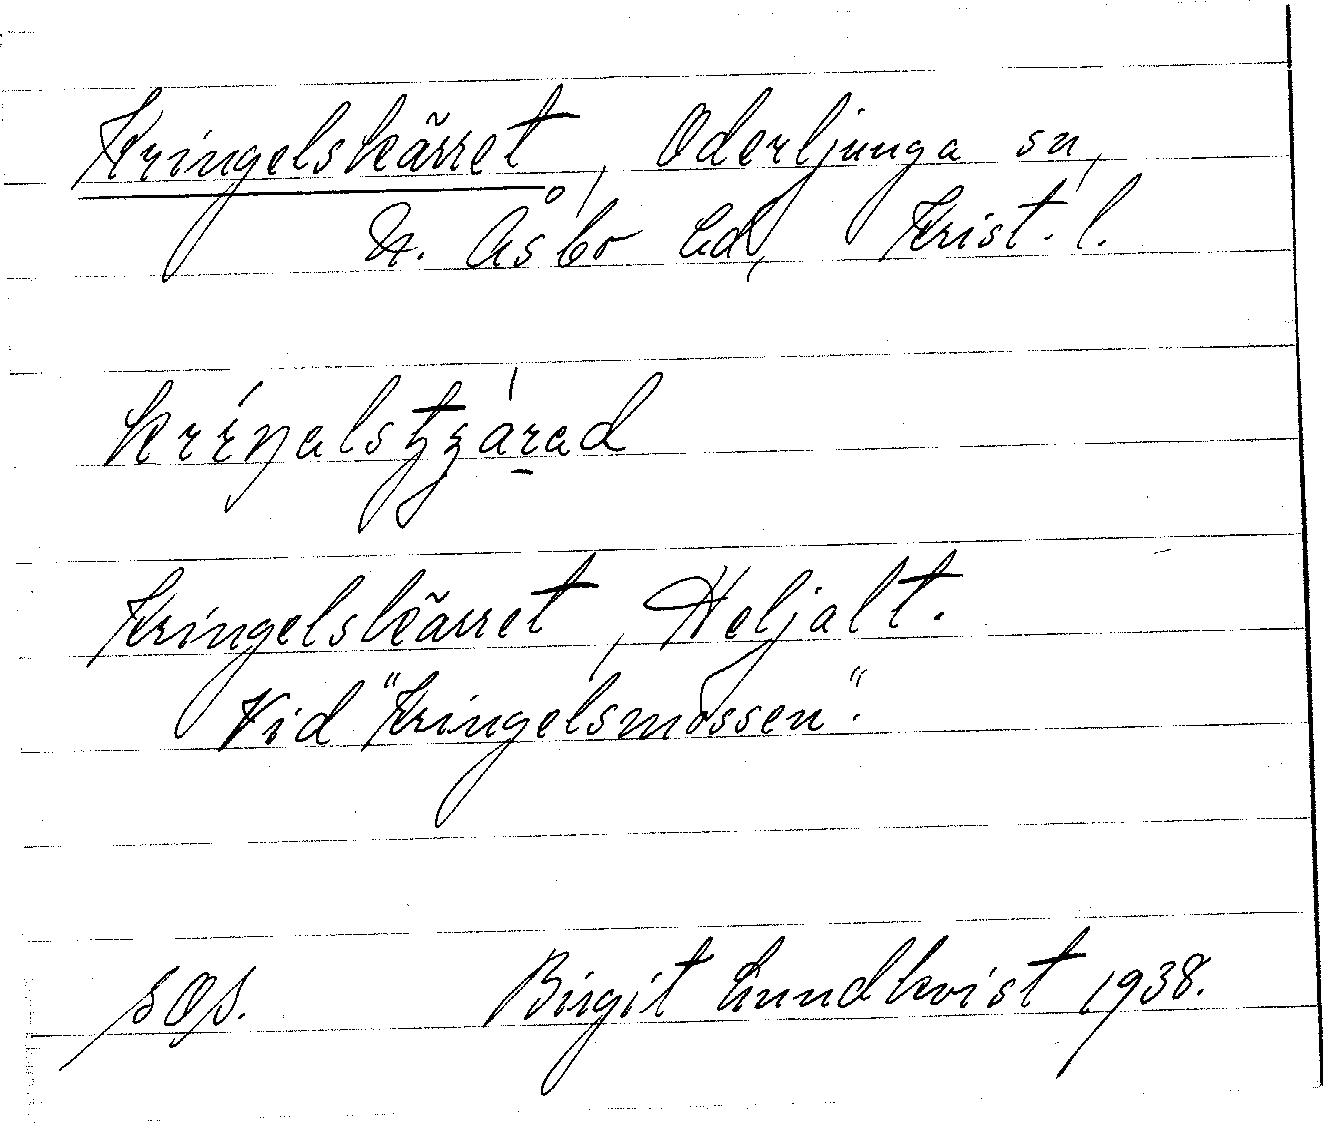 Kringelskärret, Oderljunga sn,
N. Åsbo hd, Krist. l.
Kringelskärret, Heljalt.
Vid "Kringelsmossen".
SOA. Birgit Lundkvist 1938.